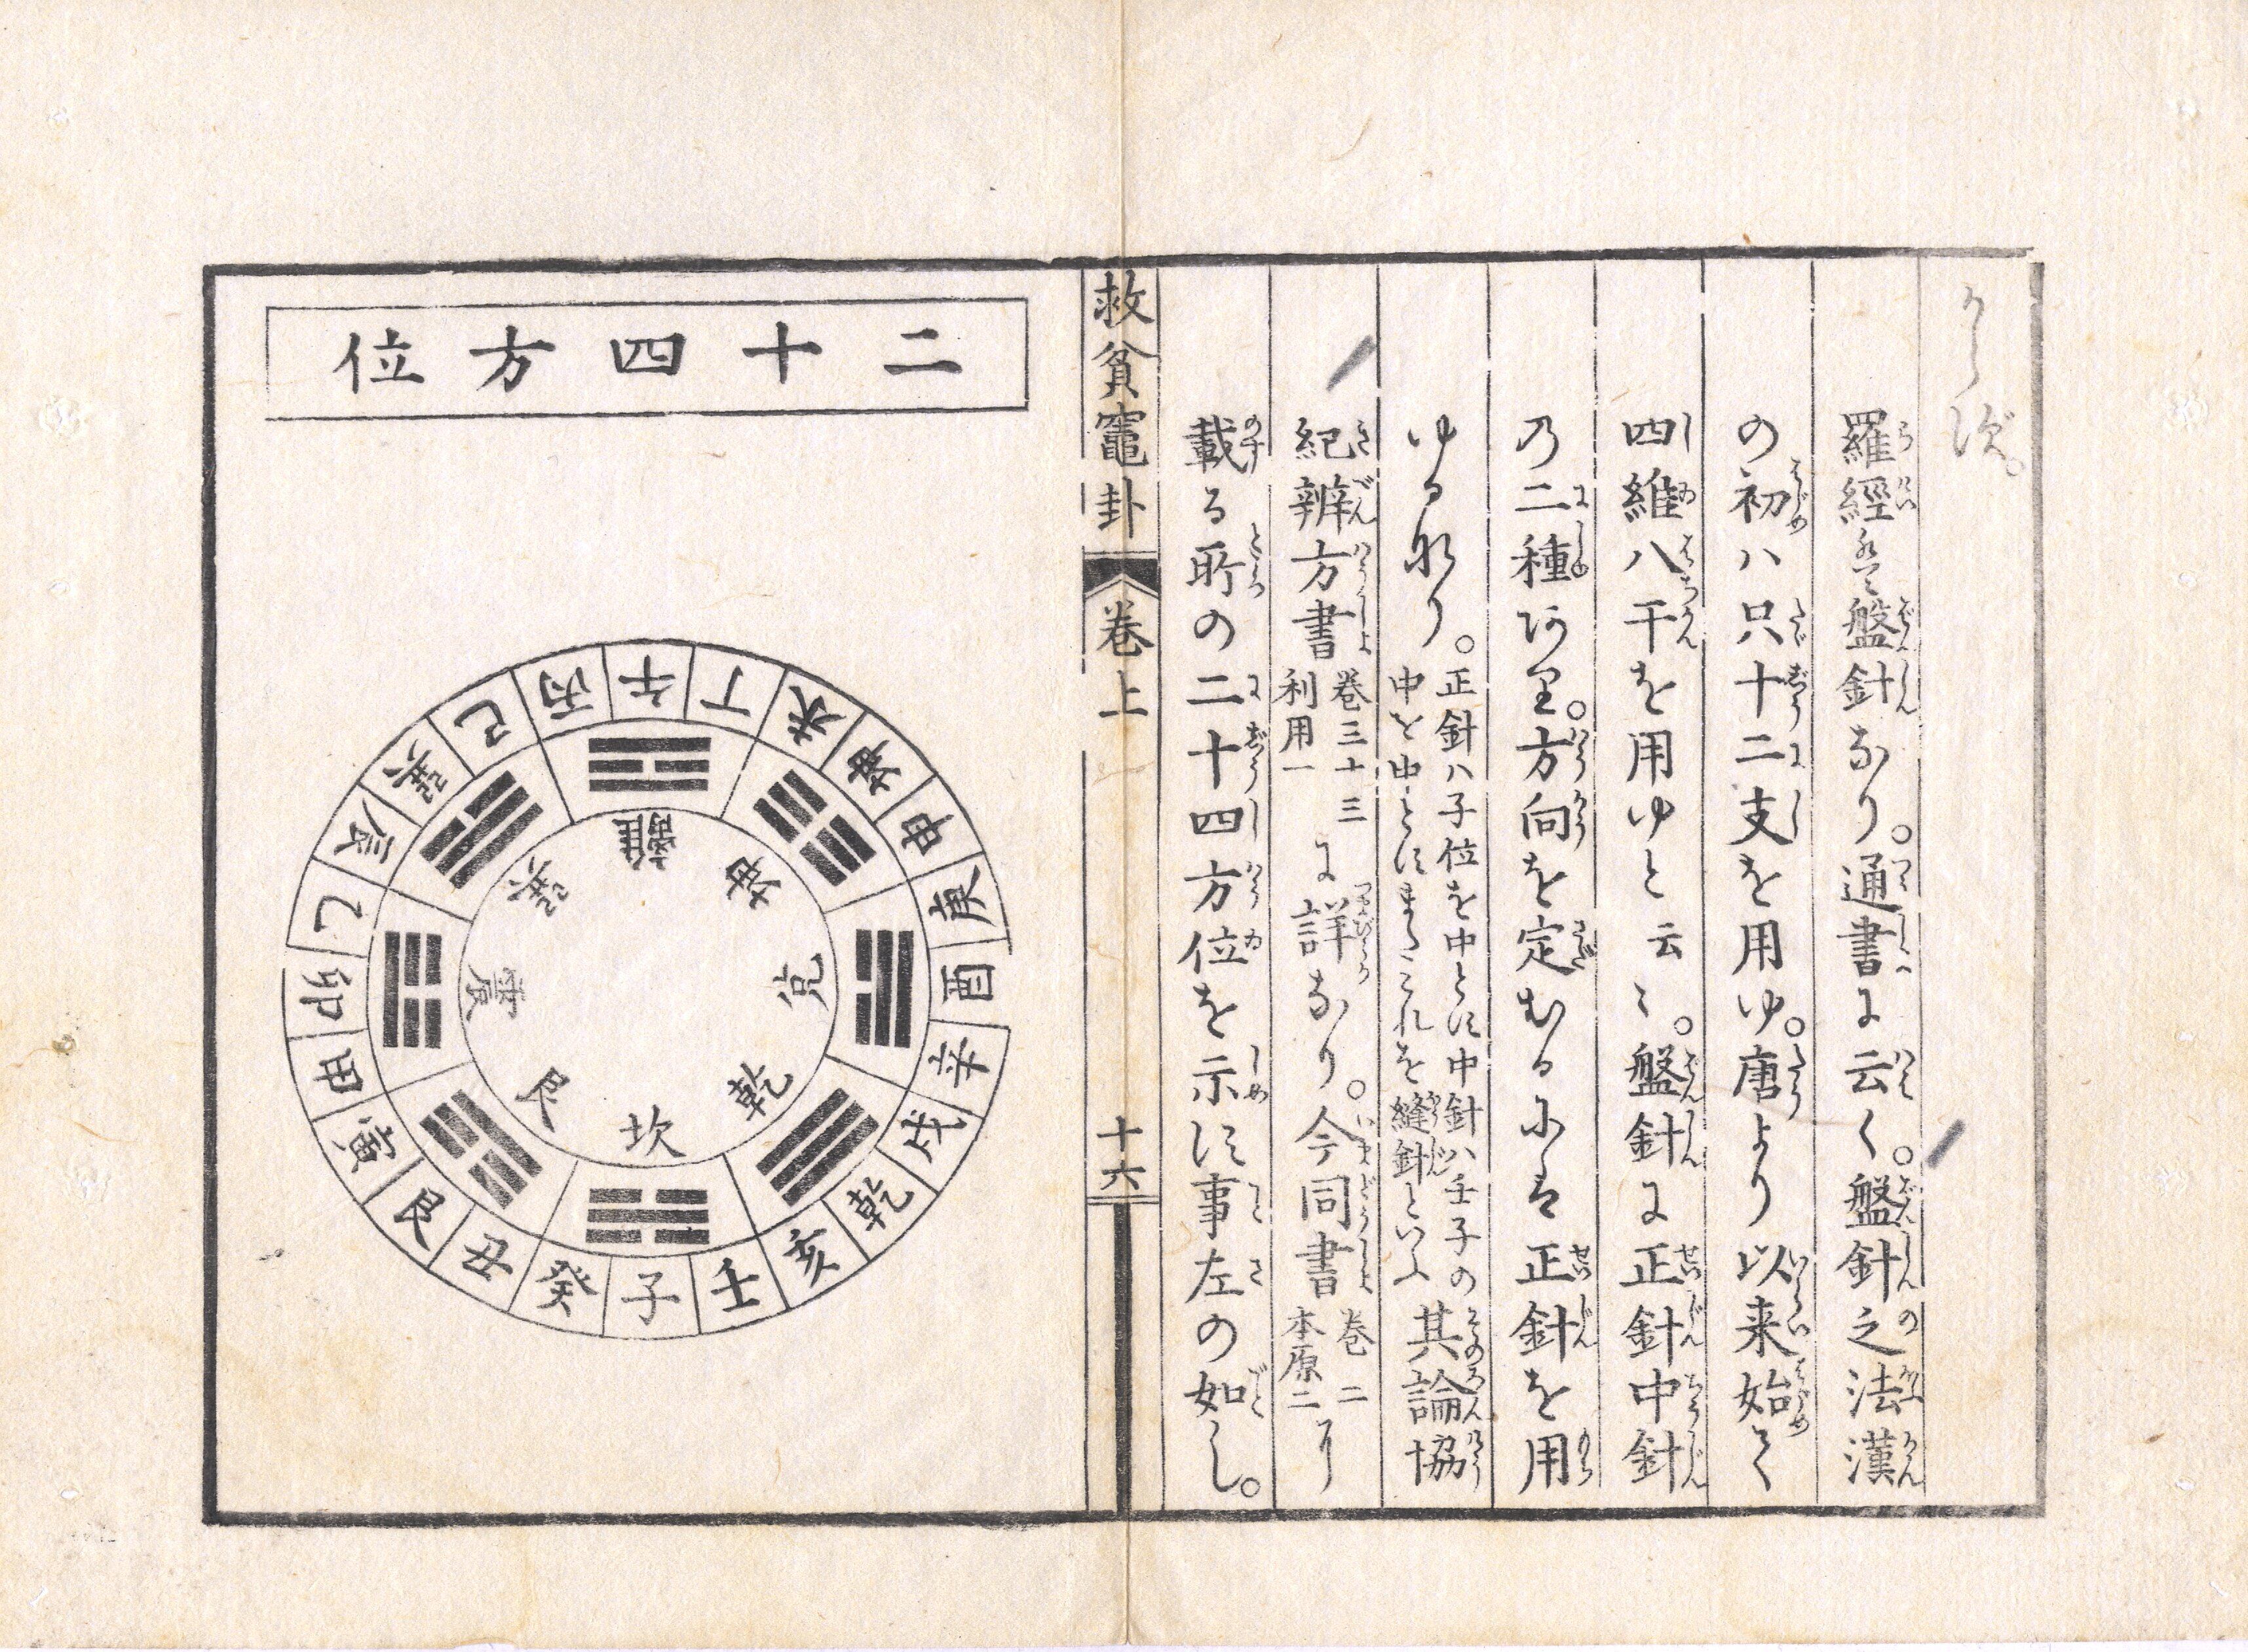 からず。
羅經盤針なり。通書に云く。盤針之法漢
の初ハ只十二支を用ゆ。唐より以来始て
四維八干を用ゆと云〻。盤針に正針中針
の二種あり。方向を定むるには正針を用
ゆるなり。正針ハ子位を中とす中針ハ壬子の
中を中とすまたこれを縫針といふ其論協
紀辨方書巻三十三
利用一に詳なり。今同書巻二
本原二より
載る所の二十四方位を示す事左の如し。
救貧竈卦 巻上 十六
二十四方位
午
丁
未
坤
申
庚
酉
辛
戌
乾
亥
壬
子
癸
丑
艮
寅
甲
卯
乙
辰
巽
巳
丙
離
坤
兌
乾
坎
艮
震
巽